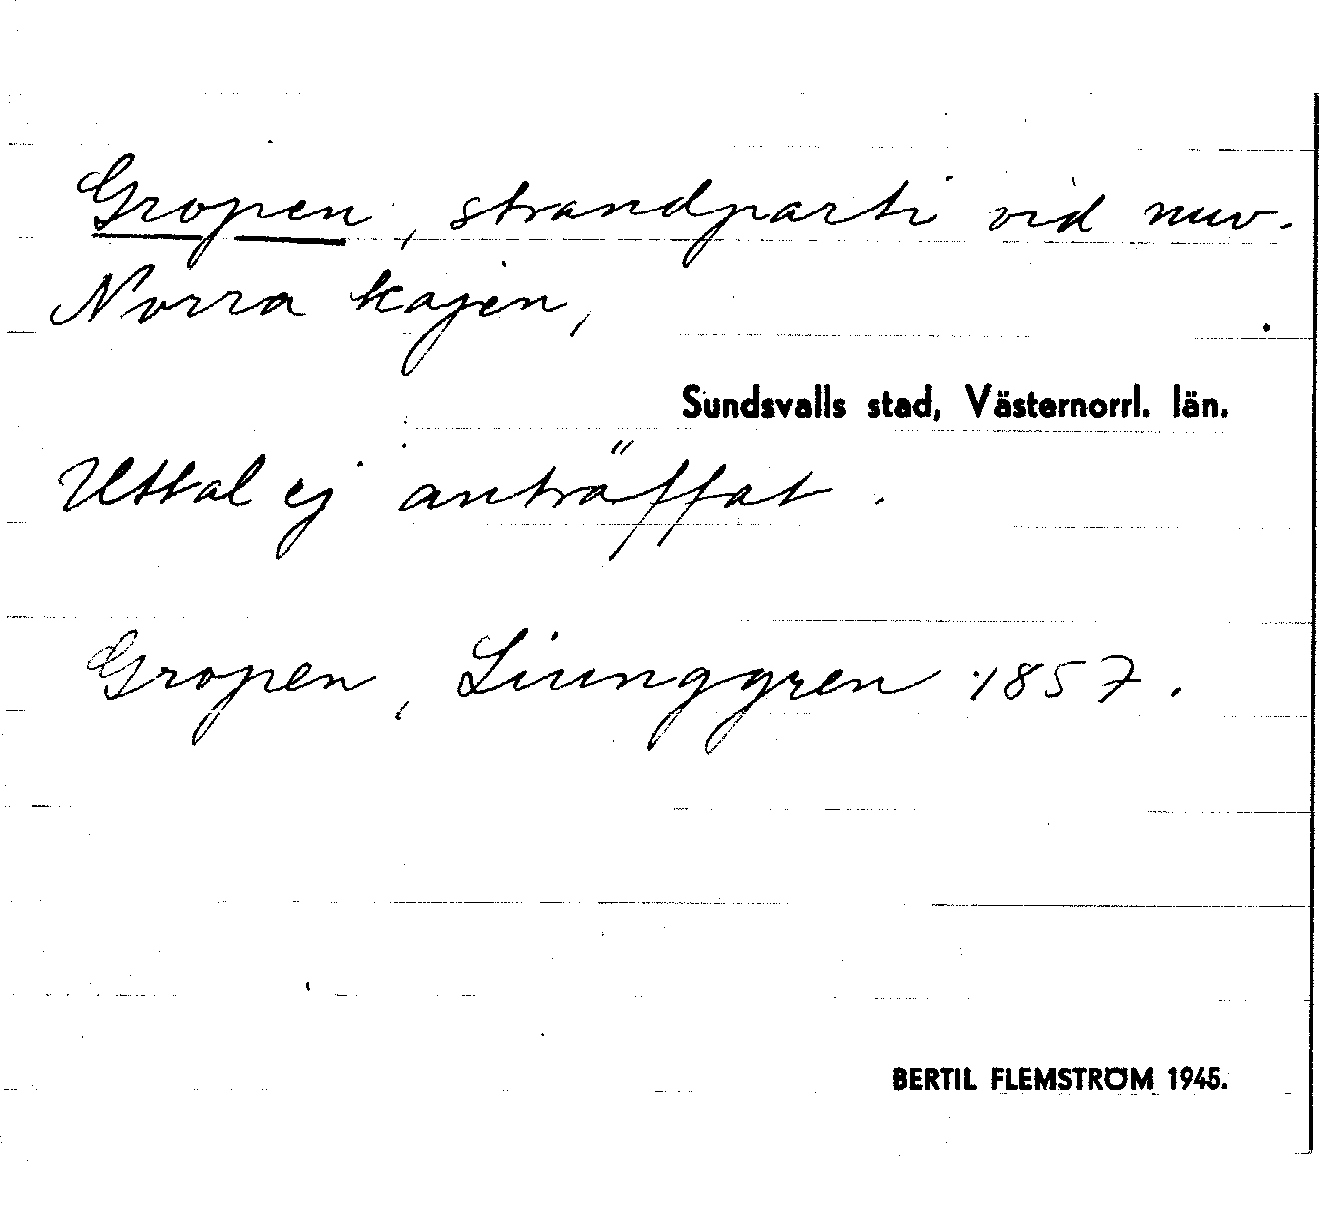 Gropen, strandparti vid nuv.
Norra kajen,
Sundsvalls stad, Västernorrl. län.
Uttal ej anträffat.
Gropen, Liunggren 1857.
BERTIL FLEMSTRÖM 1945.